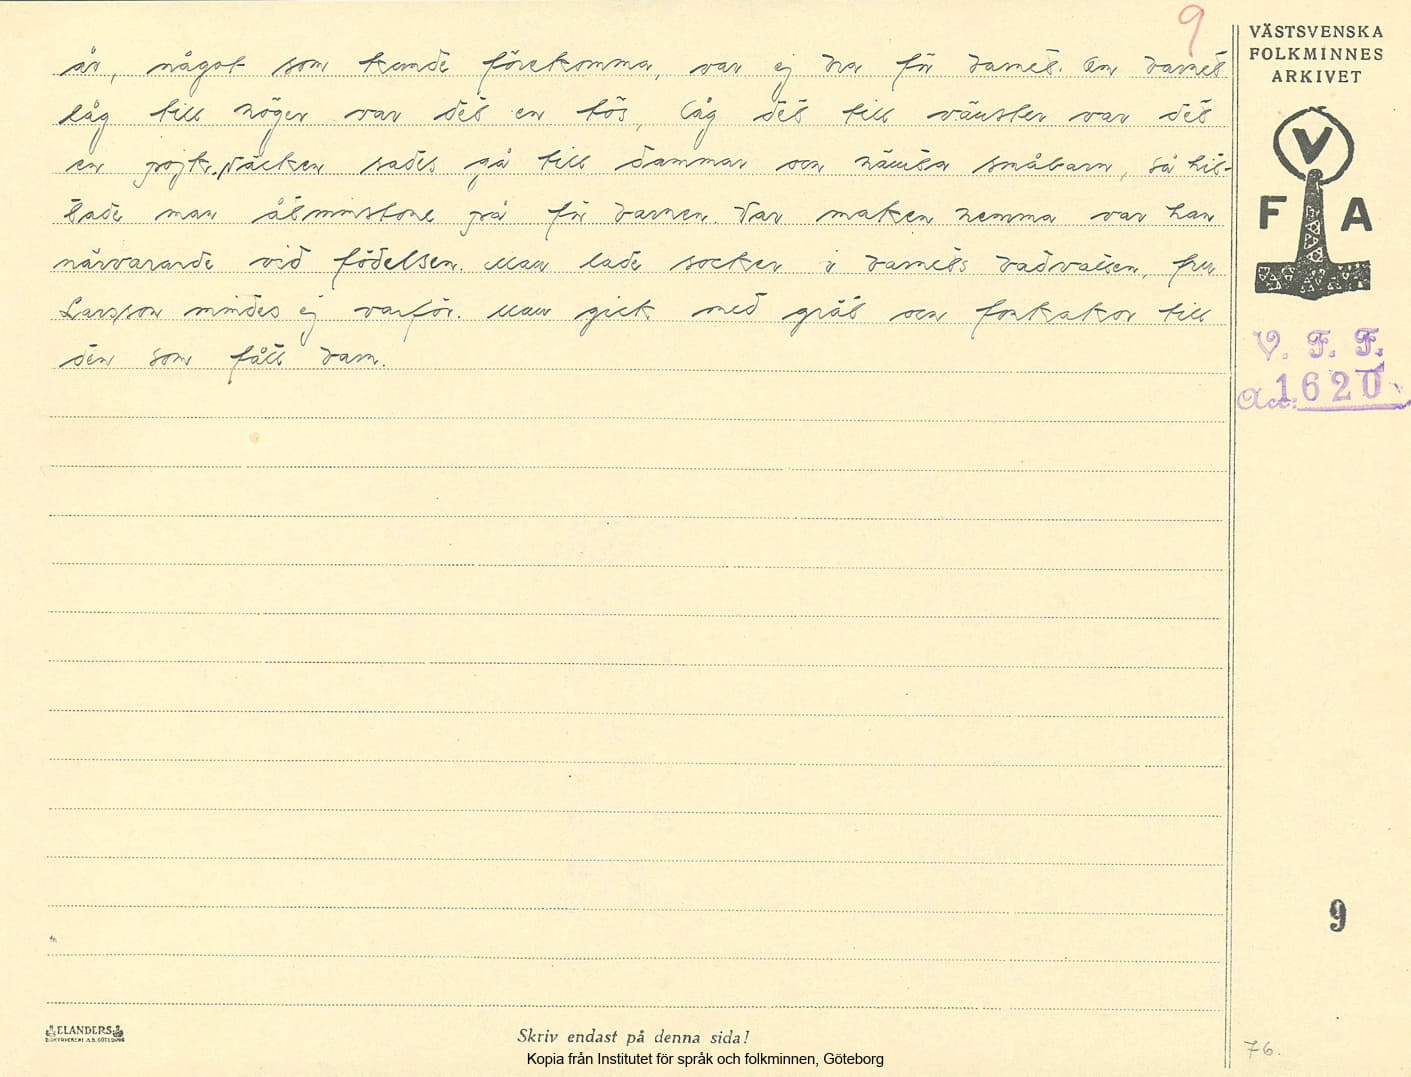 9
år, något som kunde förekomma, var ej bra för barnet. Om barnet
låg till höger var det en tös, låg det till vänster var det
en pojk. Näcken sades gå till dammar och hämta småbarn, så hit-
tade man åbminstone på för barnen. Var maken hemma var han
närvarande vid födelsen. Man lade socker i barnets badvatten, fru
Larsson mindes ej varför. Man gick med gröt och fonkakor till
den som fått barn.
VÄSTSVENSKA
FOLKMINNES
ARKIVET
V
F A
V. F. F.
Acc: 1620
9
76.
ELANDERS
BOKTRYCKERI A.B. GÖTEBORG
Skriv endast på denna sida!
Kopia från Institutet för språk och folkminnen, Göteborg